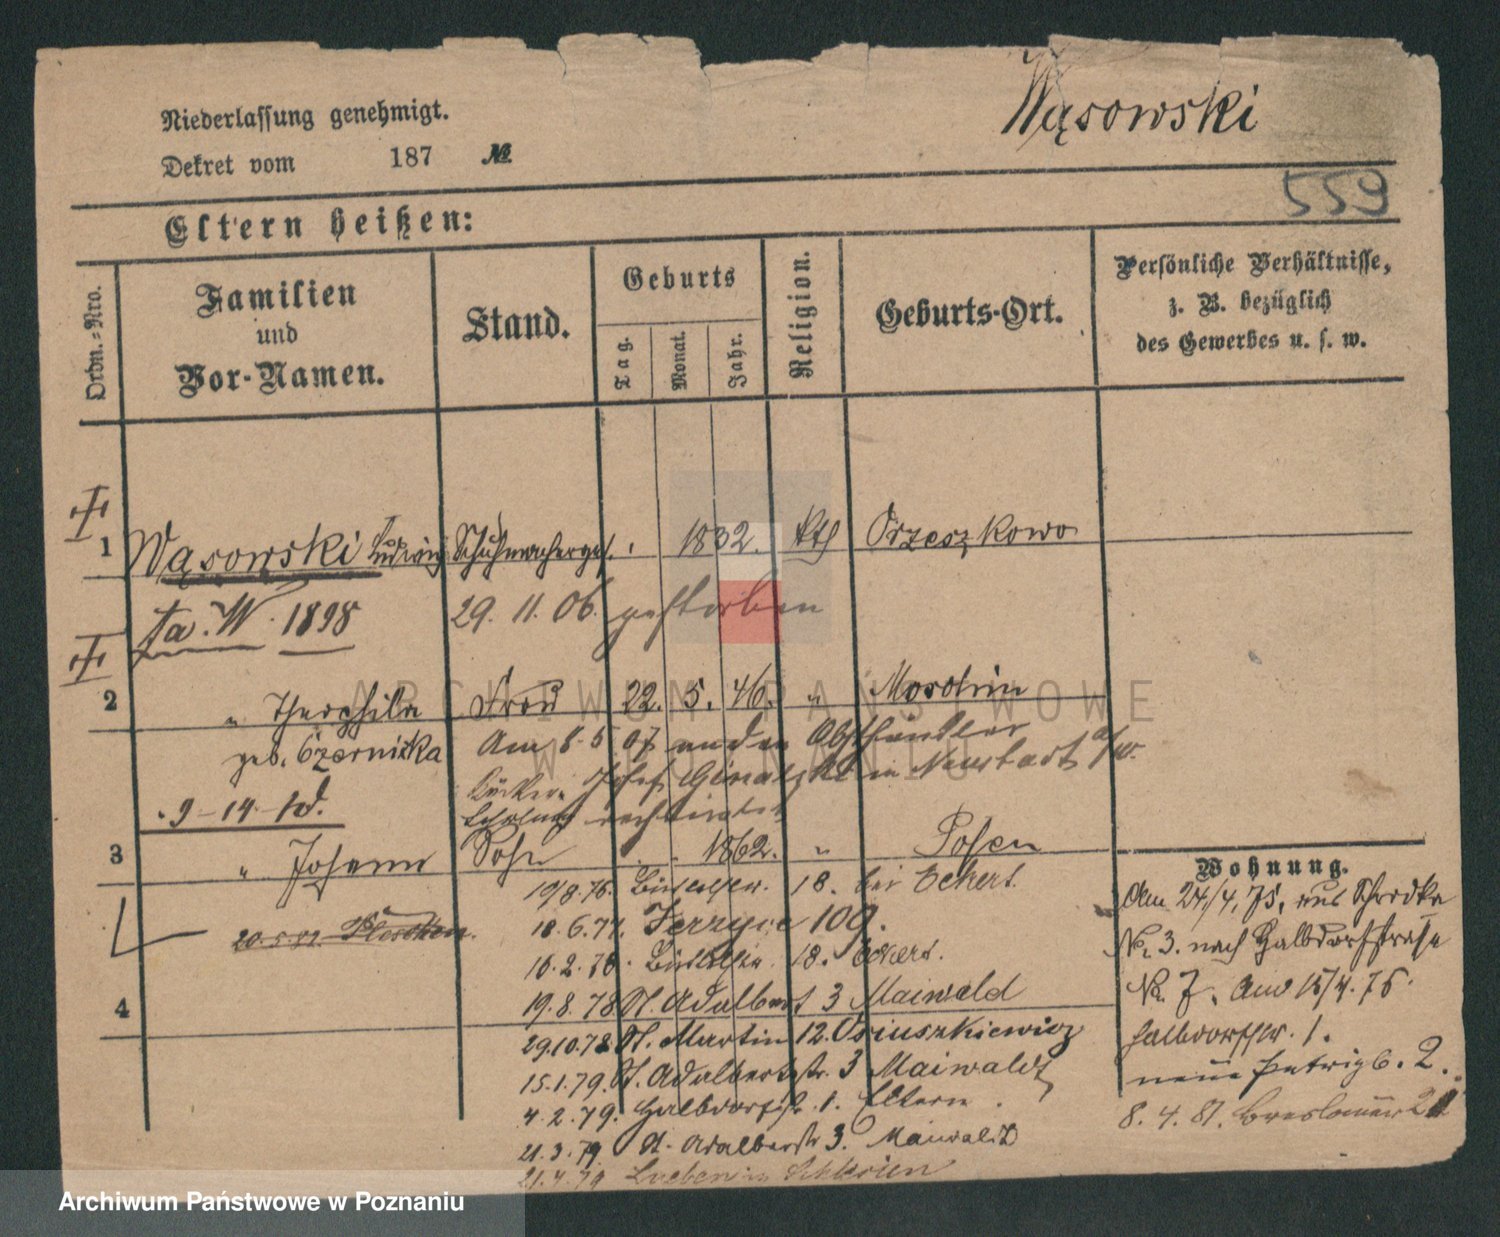 Wąsowski
Niederlassung genehmigt.
Dekret vom 187 №
559
Eltern heißen:
Ordn.-Nro.
Familien
und
Vor-Namen.
Stand.
Geburts
Tag.
Monat.
Jahr.
Religion.
Geburts-Ort.
Persönliche Verhältnisse,
z. B. bezüglich
des Gewerbes u. s. w.
1 Wąsowski Ludwig Schuhmacherges. 1832. kth Orzeszkowo
fa. W. 1898 29. 11. 06. gestorben
2 " Theophila Frau 22. 5. 46. " Moschin
geb. Czernicka Am 8 5 07 an den Obsthändler
Josef in Neustadt a/W.
9-14
verheiratet
3 " Johann Sohn 1862. " Posen
19/8.76. Büttelstr. 18. bei Eckert.
20.5.82 Pleschen. 18.6.77. Jerzyce 109.
16.2.78. Büttelstr. 18. Eckert.
4 19.8.78 St. Adalbert 3 Maiwald
29.10.78 St. Martin 12. Osiuszkiewicz
15.1.79. St. Adalbertstr. 3 Maiwald
4.2.79. Halbdorfstr. 1. Eltern.
21.3.79 St. Adalbertstr 3. Maiwald
21.4.79 Lueben in Schlesien
Wohnung.
Am 24/4.75. aus Schrodka
No. 3. nach Halbdorfstraße
No. 7. Am 15/4.76.
Halbdorfstr. 1.
neue 2.
8.4.81. Breslauerstr 21
ARCHIWUM PAŃSTWOWE
W POZNANIU
Archiwum Państwowe w Poznaniu